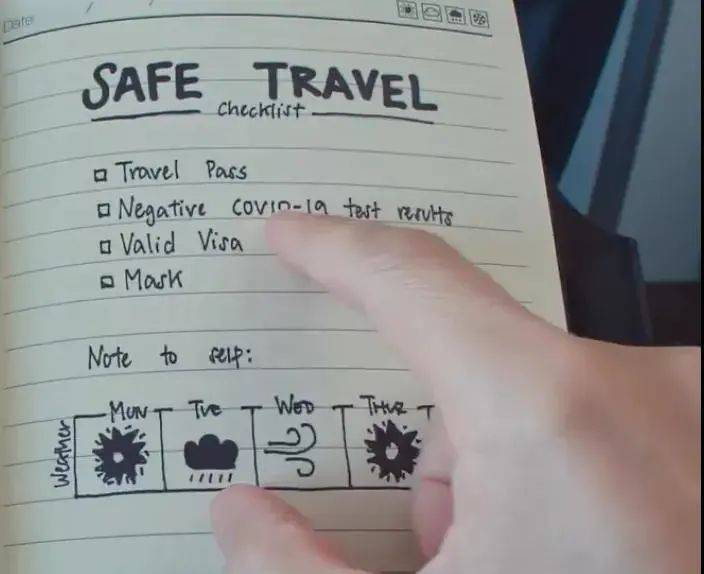 Date: / /
SAFE TRAVEL
Checklist
Travel Pass
Negative COVID-19 test results
Valid Visa
Mask
Note to self:
MON TUE WED THUR
Weather